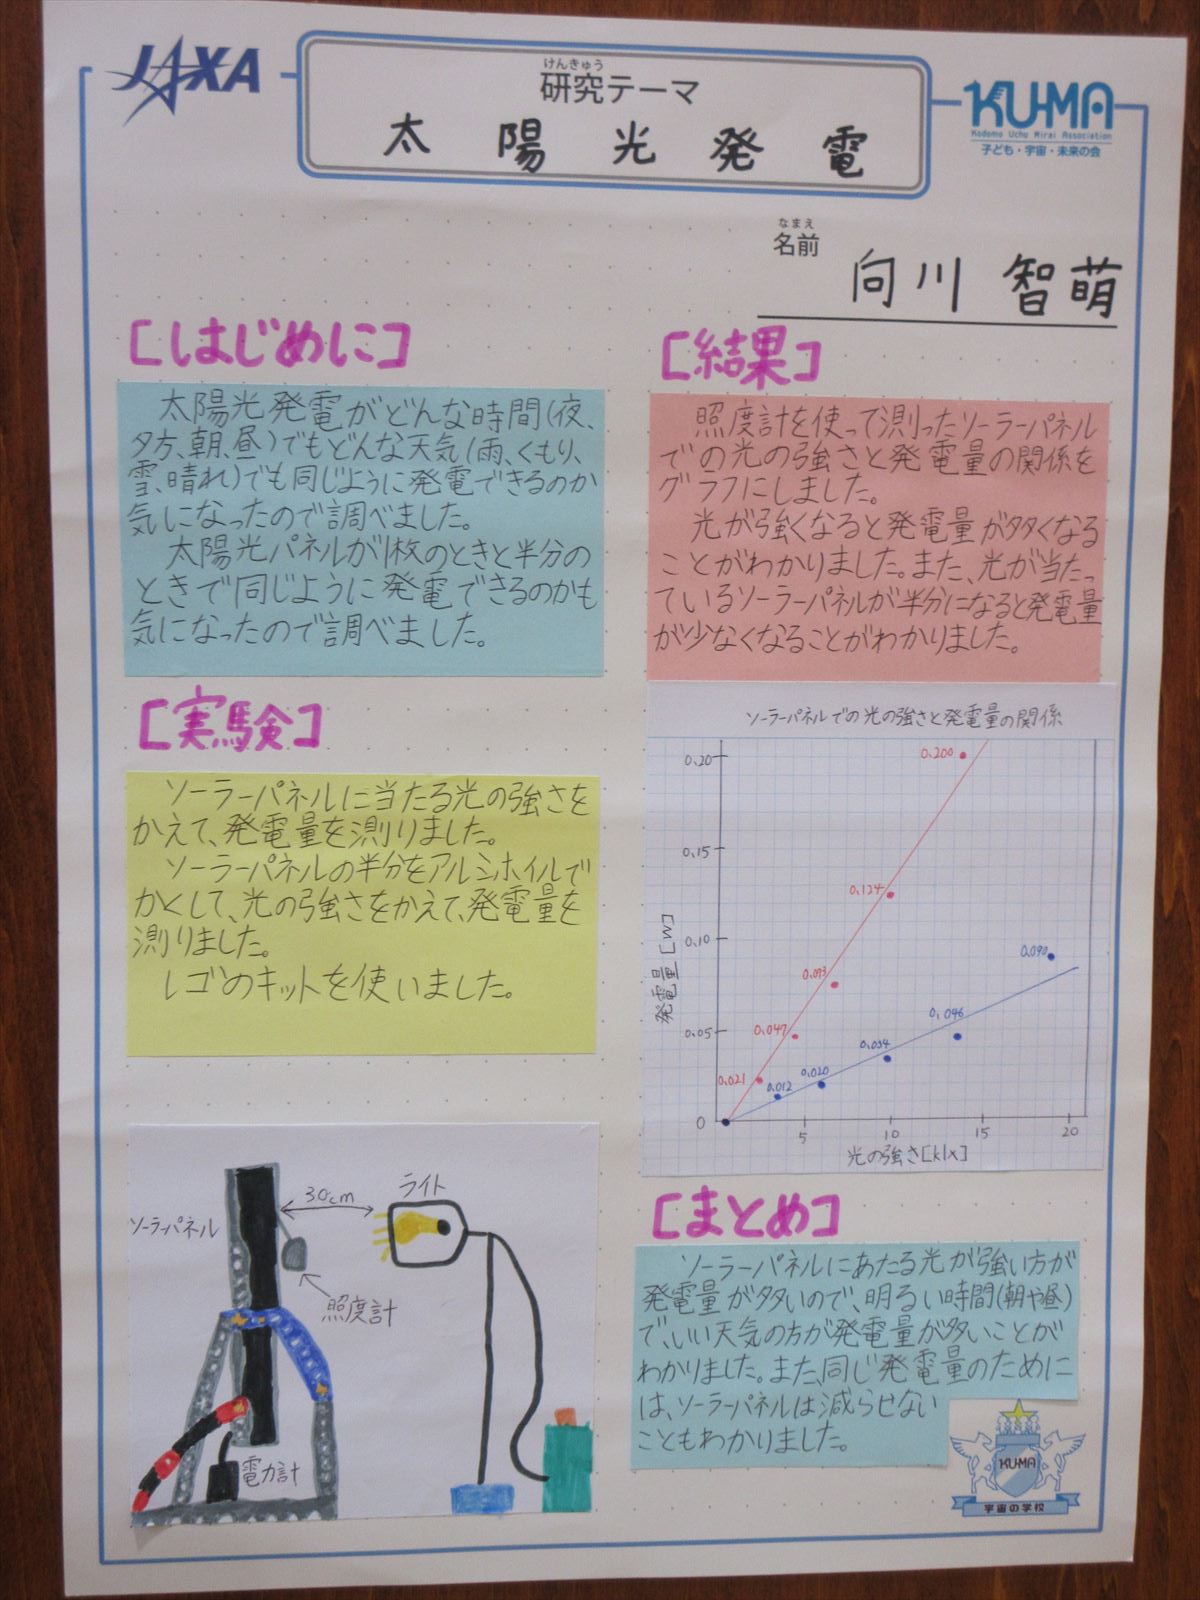 JAXA
けんきゅう
研究テーマ
太陽光発電
KU-MA
Kodomo Uchu Mirai Association
子ども・宇宙・未来の会
なまえ
名前
向川 智萌
[はじめに]
太陽光発電がどんな時間(夜、
夕方、朝、昼)でもどんな天気(雨、くもり、
雪、晴れ)でも同じように発電できるのか
気になったので調べました。
太陽光パネルが1枚のときと半分の
ときで同じように発電できるのかも
気になったので調べました。
[実験]
ソーラーパネルに当たる光の強さを
かえて、発電量を測りました。
ソーラーパネルの半分をアルミホイルで
かくして、光の強さをかえて、発電量を
測りました。
レゴのキットを使いました。
ソーラーパネル
30cm
ライト
照度計
電力計
[結果]
照度計を使って測ったソーラーパネル
での光の強さと発電量の関係を
グラフにしました。
光が強くなると発電量が多くなる
ことがわかりました。また、光が当たっ
ているソーラーパネルが半分になると発電量
が少なくなることがわかりました。
ソーラーパネルでの光の強さと発電量の関係
発電量[W]
0.20
0.15
0.10
0.05
0
0.200
0.124
0.073
0.047
0.021
0.090
0.046
0.034
0.020
0.012
5
10
15
20
光の強さ[klx]
[まとめ]
ソーラーパネルにあたる光が強い方が
発電量が多いので、明るい時間(朝や昼)
で、いい天気の方が発電量が多いことが
わかりました。また、同じ発電量のために
は、ソーラーパネルは減らせない
こともわかりました。
KUMA
宇宙の学校